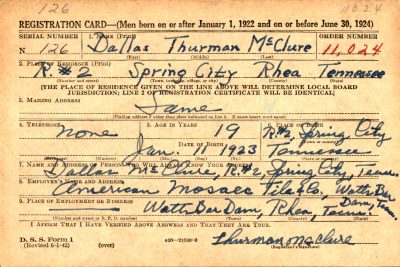 126
11024
REGISTRATION CARD—(Men born on or after January 1, 1922 and on or before June 30, 1924)
SERIAL NUMBER 1. NAME (Print) ORDER NUMBER
N 126 Dallas Thurman McClure 11,024
(First) (Middle) (Last)
2. PLACE OF RESIDENCE (Print)
R.#2 Spring City Rhea Tennessee
(Town, township, village, or city) (County) (State)
[THE PLACE OF RESIDENCE GIVEN ON THE LINE ABOVE WILL DETERMINE LOCAL BOARD
JURISDICTION; LINE 2 OF REGISTRATION CERTIFICATE WILL BE IDENTICAL]
3. MAILING ADDRESS
Same
(Mailing address if other than place indicated on line 2. If same insert word same)
4. TELEPHONE 5. AGE IN YEARS 6. PLACE OF BIRTH
None 19 R#2, Spring City
DATE OF BIRTH
Jan. 11 1923 Tennessee
7. NAME AND ADDRESS OF PERSON WHO WILL ALWAYS KNOW YOUR ADDRESS
Dallas McClure, R.#2, Spring City, Tenn.
8. EMPLOYER'S NAME AND ADDRESS
American Mosaec Tile Co, Watts Bar
Dam, Tenn.
9. PLACE OF EMPLOYMENT OR BUSINESS
Watts Bar Dam, Rhea, Tenn.
(Number and street or R. F. D. number) (Town) (County) (State)
I AFFIRM THAT I HAVE VERIFIED ABOVE ANSWERS AND THAT THEY ARE TRUE.
D. S. S. Form 1
(Revised 6-1-42) (over) Thurman McClure
(Registrant's signature)